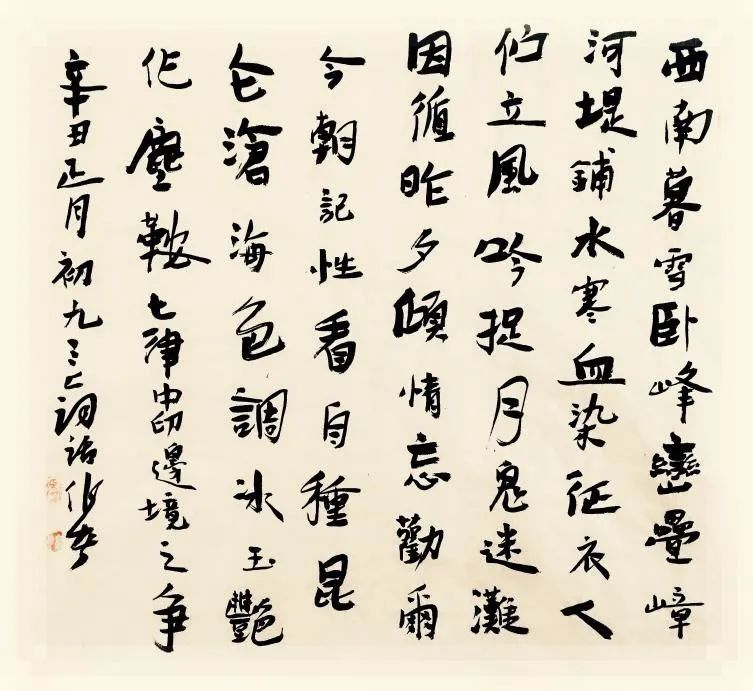 西南暮雪卧峰巒疊嶂
河堤鋪水寒血染征衣人
佇立風吟捉月鬼迷灘
因循昨夕傾情忘勸爾
今朝記性看自種昆
仑滄海色調冰玉艷
化塵鞍七律中印邊境之争
辛丑正月初九